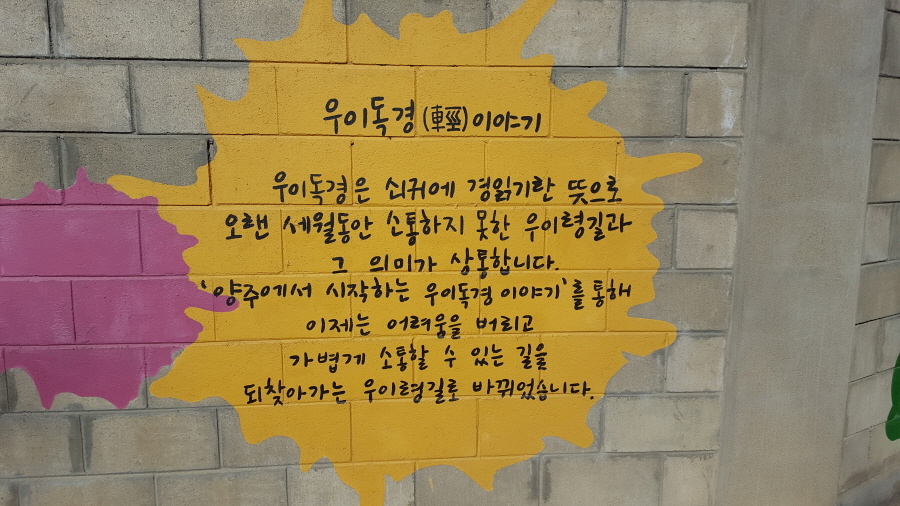 우이독경(輕)이야기
우이독경은 쇠귀에 경읽기란 뜻으로
오랜 세월동안 소통하지 못한 우이령길과
그 의미가 상통합니다.
'양주에서 시작하는 우이독경 이야기'를 통해
이제는 어려움을 버리고
가볍게 소통할 수 있는 길을
되찾아가는 우이령길로 바뀌었습니다.